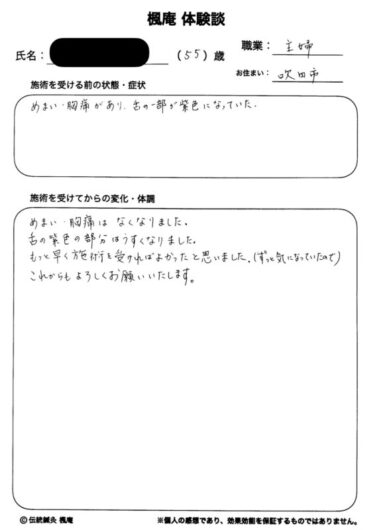 楓庵 体験談
氏名： （55）歳 職業： 主婦
お住まい： 吹田市
施術を受ける前の状態・症状
めまい・胸痛があり、舌の一部が紫色になっていた。
施術を受けてからの変化・体調
めまい・胸痛は なくなりました。
舌の紫色の部分はうすくなりました。
もっと早く施術を受ければよかったと思いました。(ずっと気になっていたので)
これからもよろしくお願いいたします。
© 伝統鍼灸 楓庵 ※個人の感想であり、効果効能を保証するものではありません。